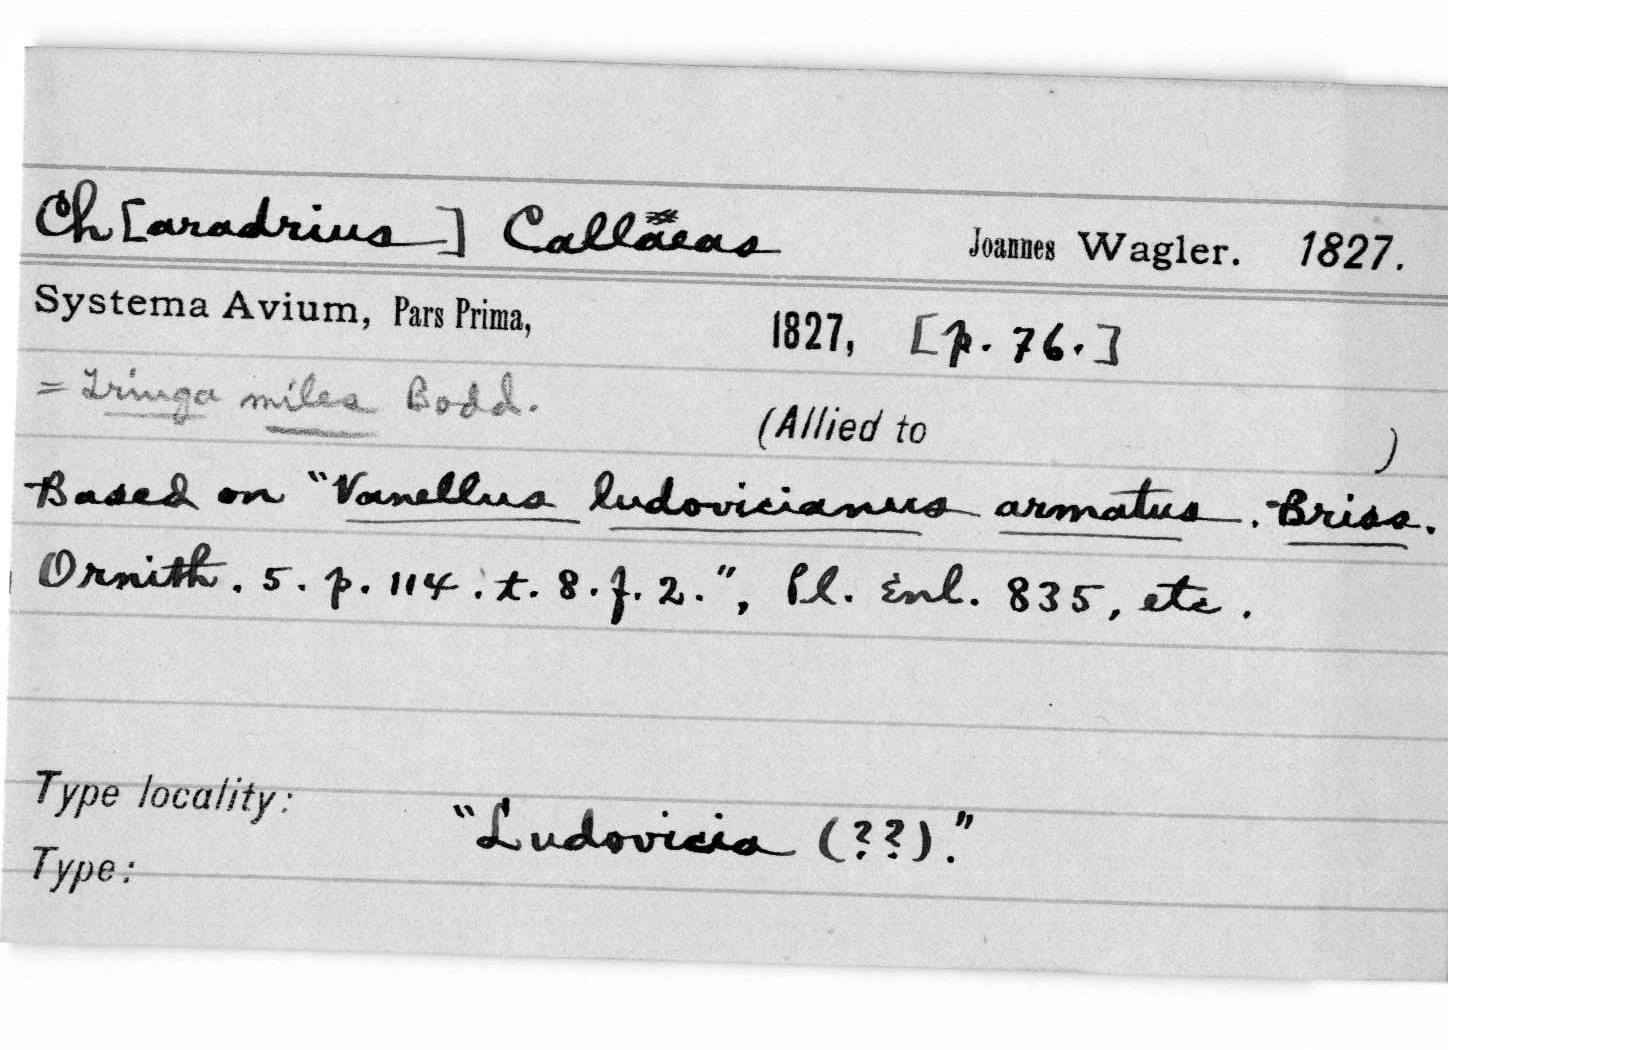 Ch[aradrius] Callaeas Joannes Wagler. 1827.
Systema Avium, Pars Prima, 1827, [p. 76.]
= Tringa miles Bodd. (Allied to )
Based on "Vanellus ludovicianus armatus. Briss.
Ornith. 5. p. 114. t. 8. f. 2.", Pl. Enl. 835, etc.
Type locality: "Ludovicia (??)."
Type: